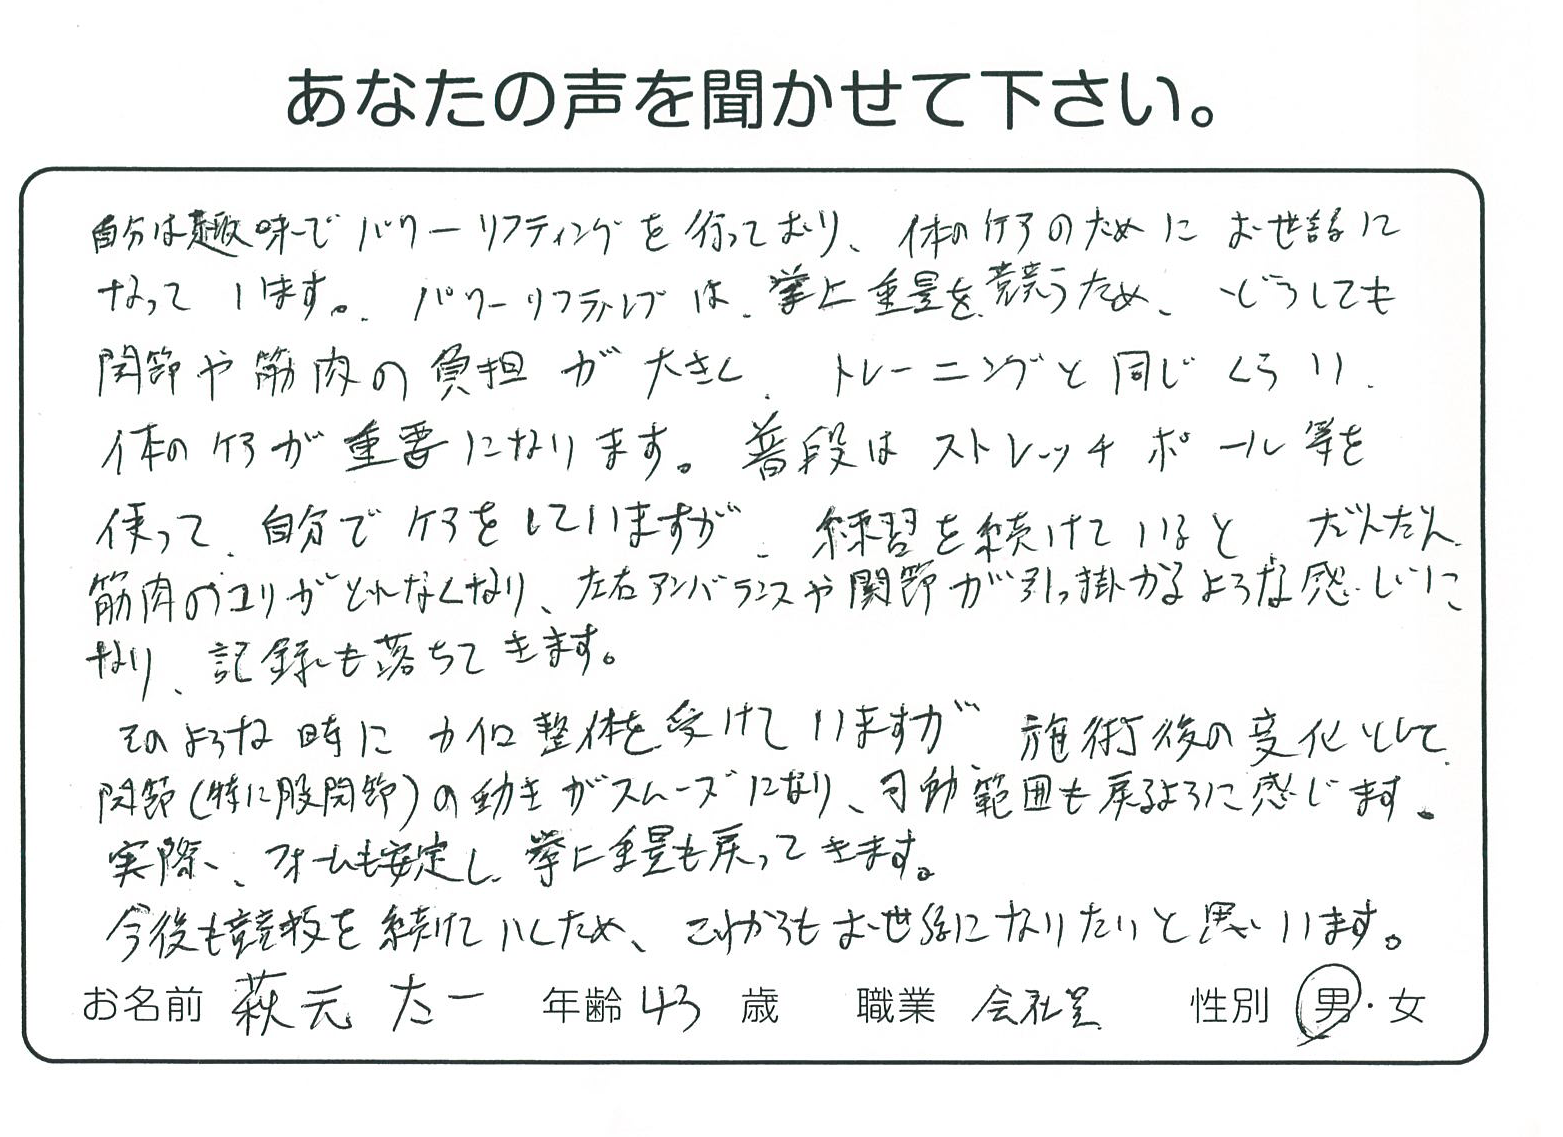 あなたの声を聞かせて下さい。
自分は趣味でパワーリフティングを行っており、体のケアのためにお世話に
なっています。パワーリフティングは、挙上重量を競うため、どうしても
関節や筋肉の負担が大きく、トレーニングと同じくらい、
体のケアが重要になります。普段はストレッチポール等を
使って、自分でケアをしていますが、練習を続けていると、だんだん
筋肉のコリがとれなくなり、左右アンバランスや関節が引っ掛かるような感じに
なり、記録も落ちてきます。
そのような時にカイロ整体を受けていますが、施術後の変化として
関節(特に股関節)の動きがスムーズになり、可動範囲も戻るように感じます。
実際、フォームも安定し、挙上重量も戻ってきます。
今後も競技を続けていくため、これからもお世話になりたいと思います。
お名前 萩元 太一 年齢 43 歳 職業 会社員 性別 男・女